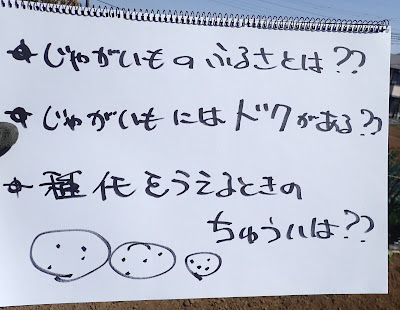 じゃがいものふるさとは??
じゃがいもにはドクがある??
種イモをうえるときの
ちゅういは??